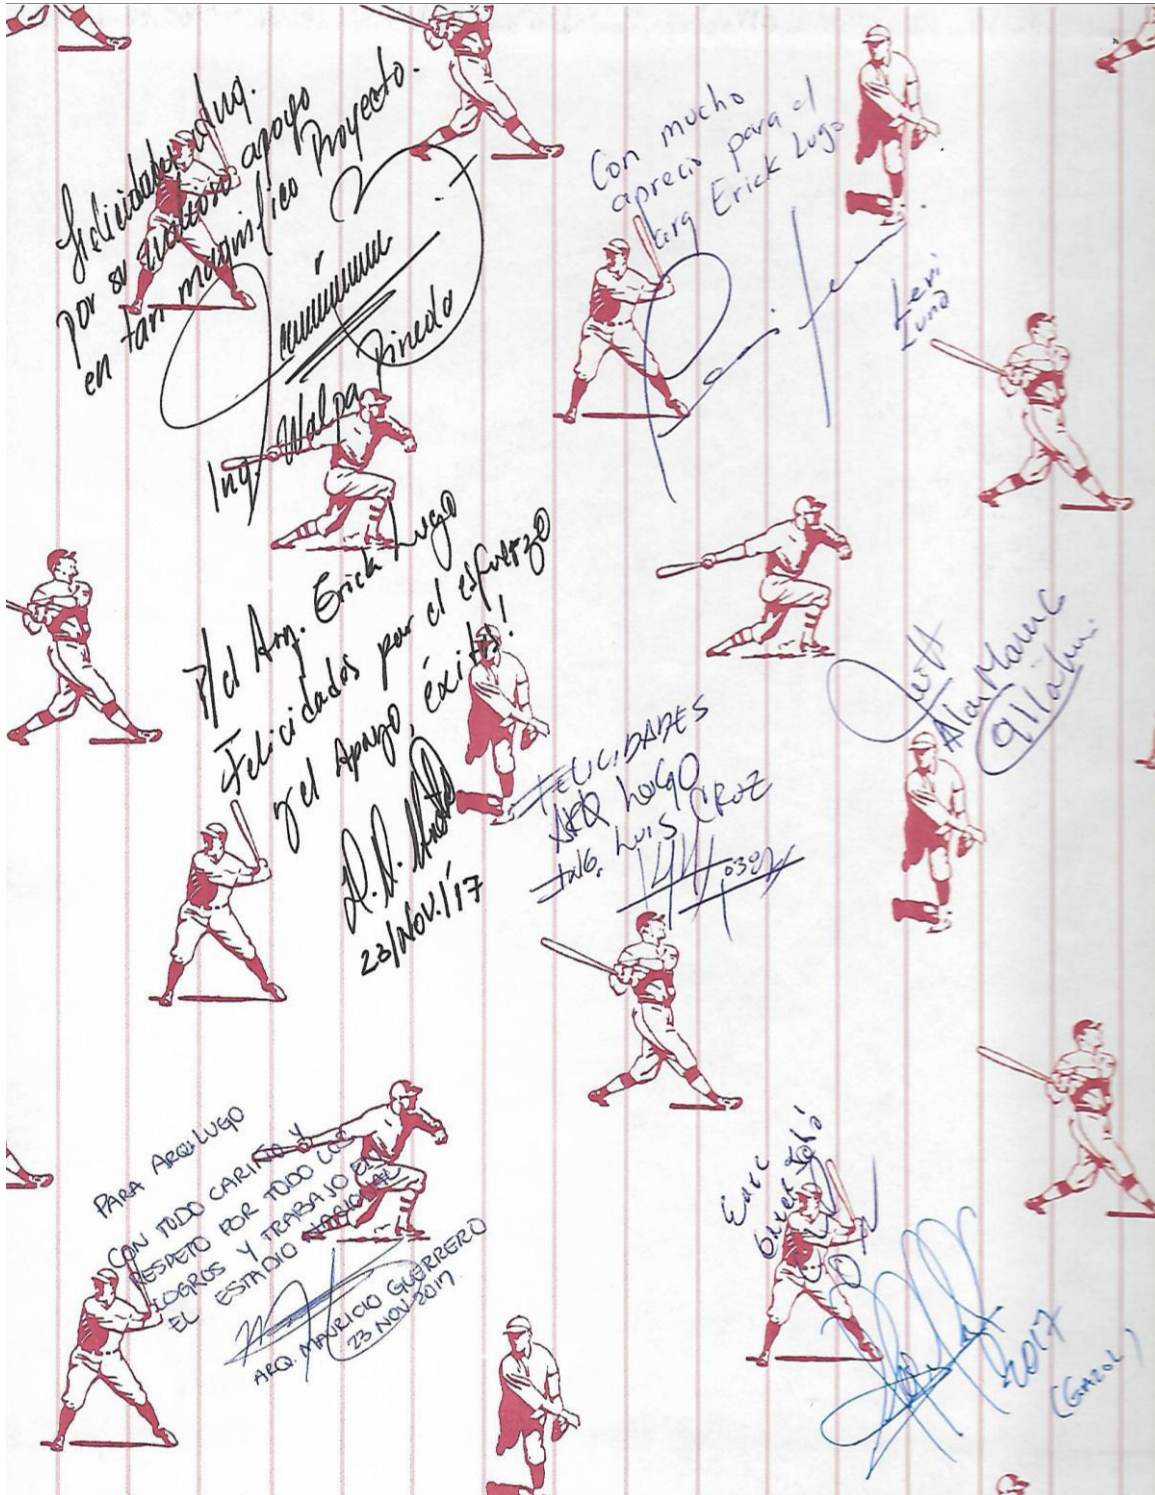 Felicidades Ing.
por su valioso apoyo
en tan magnifico Proyecto.
Ing. Walpa Pineda
Con mucho
aprecio para el
arq Erick Lugo
Levi
Luna
P/el Arq. Erick Lugo
Felicidades por el esfuerzo
y el Apoyo, éxitos!
23/Nov./17
FELICIDADES
ARQ LUGO
ING. LUIS CRUZ
PARA ARQ. LUGO
CON TODO CARIÑO Y
RESPETO POR TODO LOS
LOGROS Y TRABAJO EN
EL ESTADIO NACIONAL
ARQ. MAURICIO GUERRERO
23 NOV 2017
2017